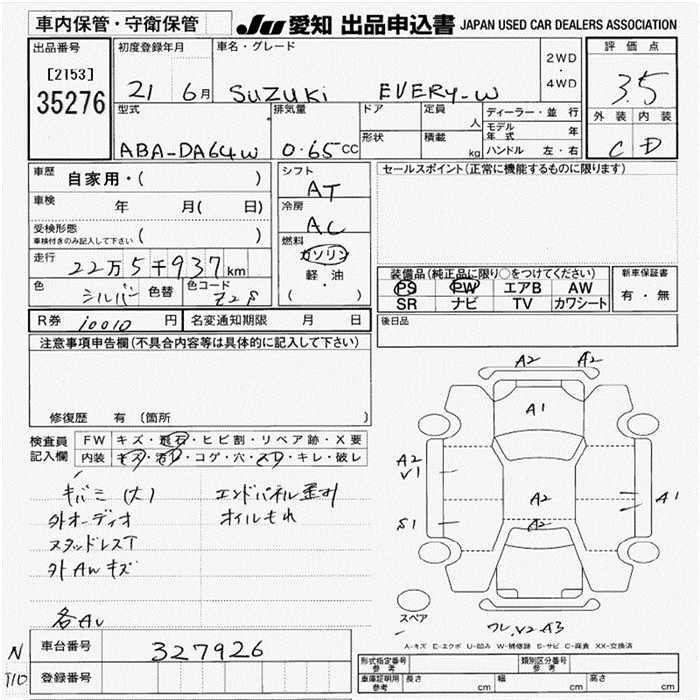 車内保管・守衛保管
JU 愛知 出品申込書 JAPAN USED CAR DEALERS ASSOCIATION
出品番号
[2153]
35276
初度登録年月
21 6月
車名・グレード
SUZUKI EVERY-W
2WD
・
4WD
評価点
3.5
外装 内装
C D
型式
ABA-DA64W
排気量
0.65CC
ドア
形状
定員
人
積載
kg
ディーラー・並行
モデル年式 年
ハンドル 左・右
車歴 自家用・( )
車検 年 月( 日)
受検形態
車検付きのみ記入して下さい ( )
走行 22万5千937km
色 シルバー 色替 色コード Z2S
シフト
AT
冷房
AC
燃料
ガソリン
軽・油
( ・ )
セールスポイント(正常に機能するものに限ります)
装備品(純正品に限り○をつけてください)
PS PW エアB AW
SR ナビ TV カワシート
新車保証書
有・無
後日品
R券 10010 円 名変通知期限 月 日
注意事項申告欄(不具合内容等は具体的に記入して下さい)
修復歴 有 (箇所 )
検査員
記入欄
FW キズ・飛石・ヒビ割・リペア跡・X要
内装 キズ・汚レ・コゲ・穴・スレ・キレ・破レ
キバミ(大) エンドパネル歪み
外オーディオ オイルもれ
スタッドレスT
外AWキズ
各AU
A2 A2
A1
A2
V1
A2
A1
S1
A2
スペア
ワレ,V2 A3
A-キズ E-エクボ U-凹み W-補修跡 S-サビ C-腐食 XX-交換済
N
110
車台番号 327926
登録番号
形式指定番号
参考
類別区分番号
参考
車庫証明用
参考
長さ cm 幅 cm 高さ cm